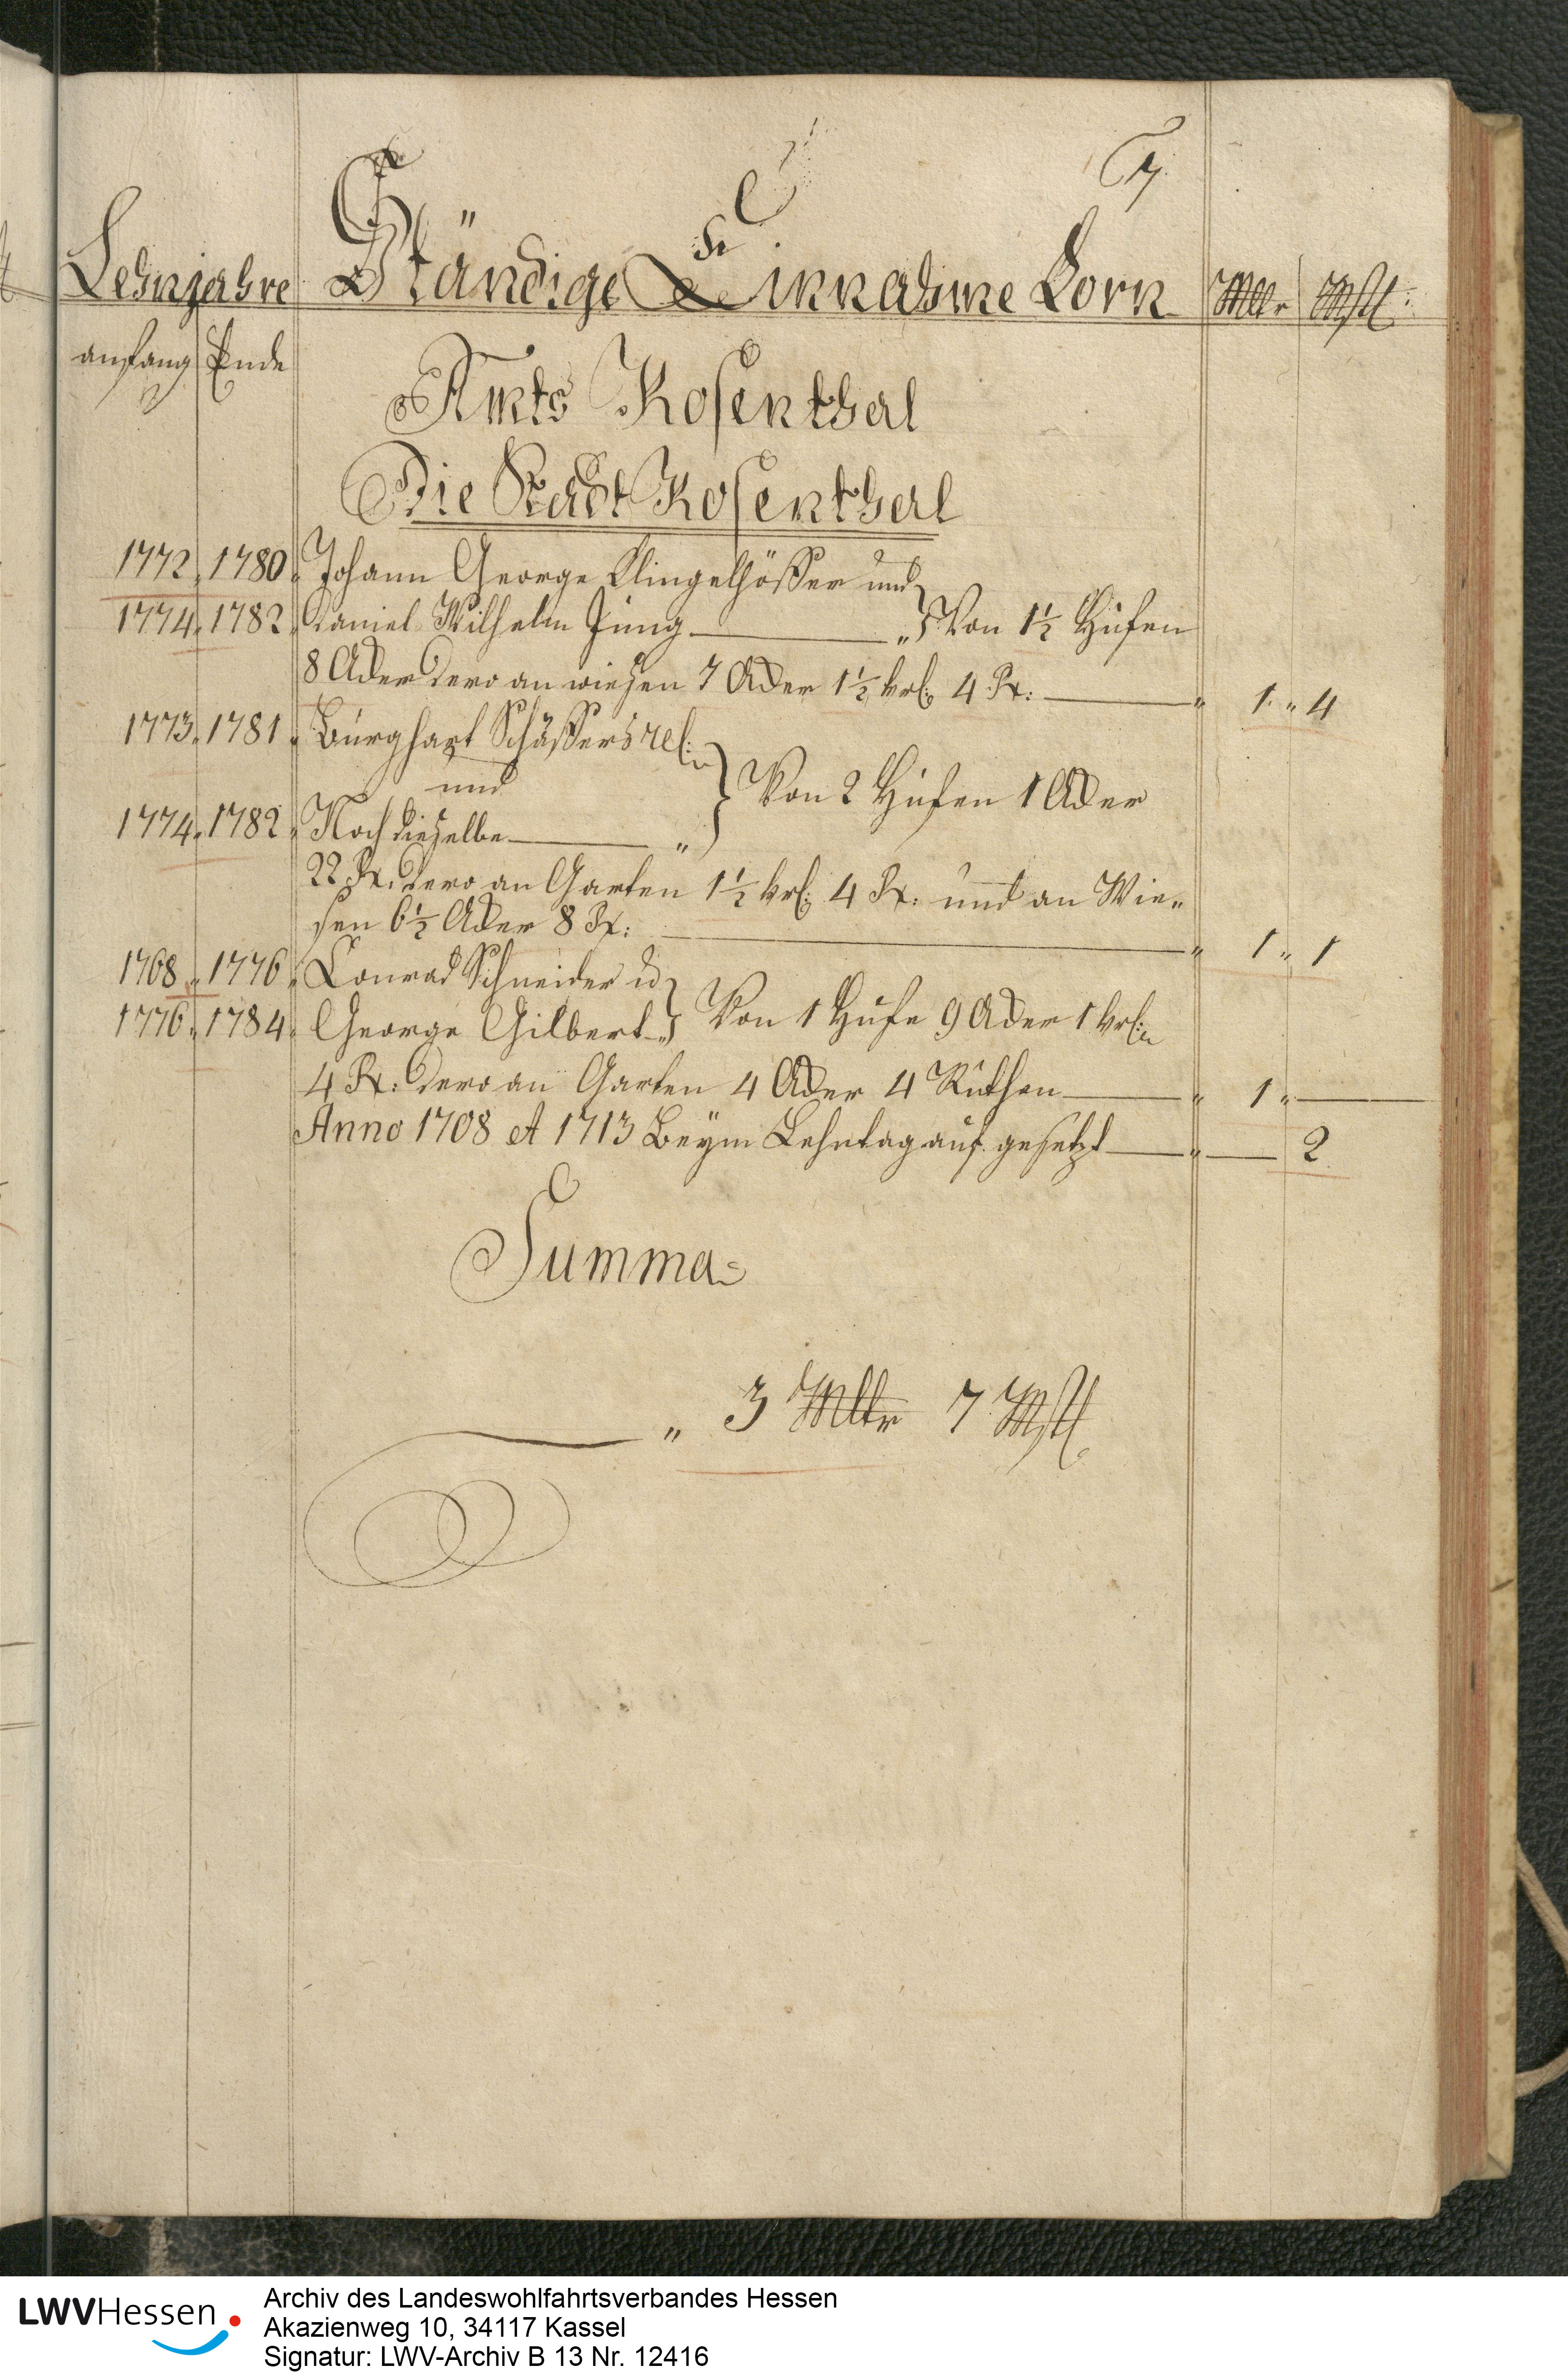 7.
Lehnjahre Ständige Einnahme Korn Mltr Mst:
anfang Ende
Amts Rosenthal
Die Stadt Rosenthal
1772. 1780. Johann George Klingelhöffer und
1774. 1782. Daniel Wilhelm Jung — „ } Von 1½ Hufen
8 Acker dero an wiesen 7 Acker 1½ vrl: 4 Rt: — „ 1. „ 4
1773. 1781. Burghart Schäffers rel:
und
} Von 2 Hufen 1 Acker
1774. 1782. Noch dieselbe — „
22 Rt. dero an Garten 1½ vrl: 4 Rt: und an Wie-
sen 6½ Acker 8 Rt: — „ 1 „ 1
1768. 1776. Conrad Schneider u
1776. 1784. George Gilbert „ } Von 1 Hufe 9 Acker 1 vrl:
4 Rt: dero an Garten 4 Acker 4 Ruthen — „ 1 „ —
Anno 1708 et 1713 Beym Lehntag auf gesetzt — „ — 2
Summa
— „ 3 Mltr 7 Mst
LWVHessen
Archiv des Landeswohlfahrtsverbandes Hessen
Akazienweg 10, 34117 Kassel
Signatur: LWV-Archiv B 13 Nr. 12416